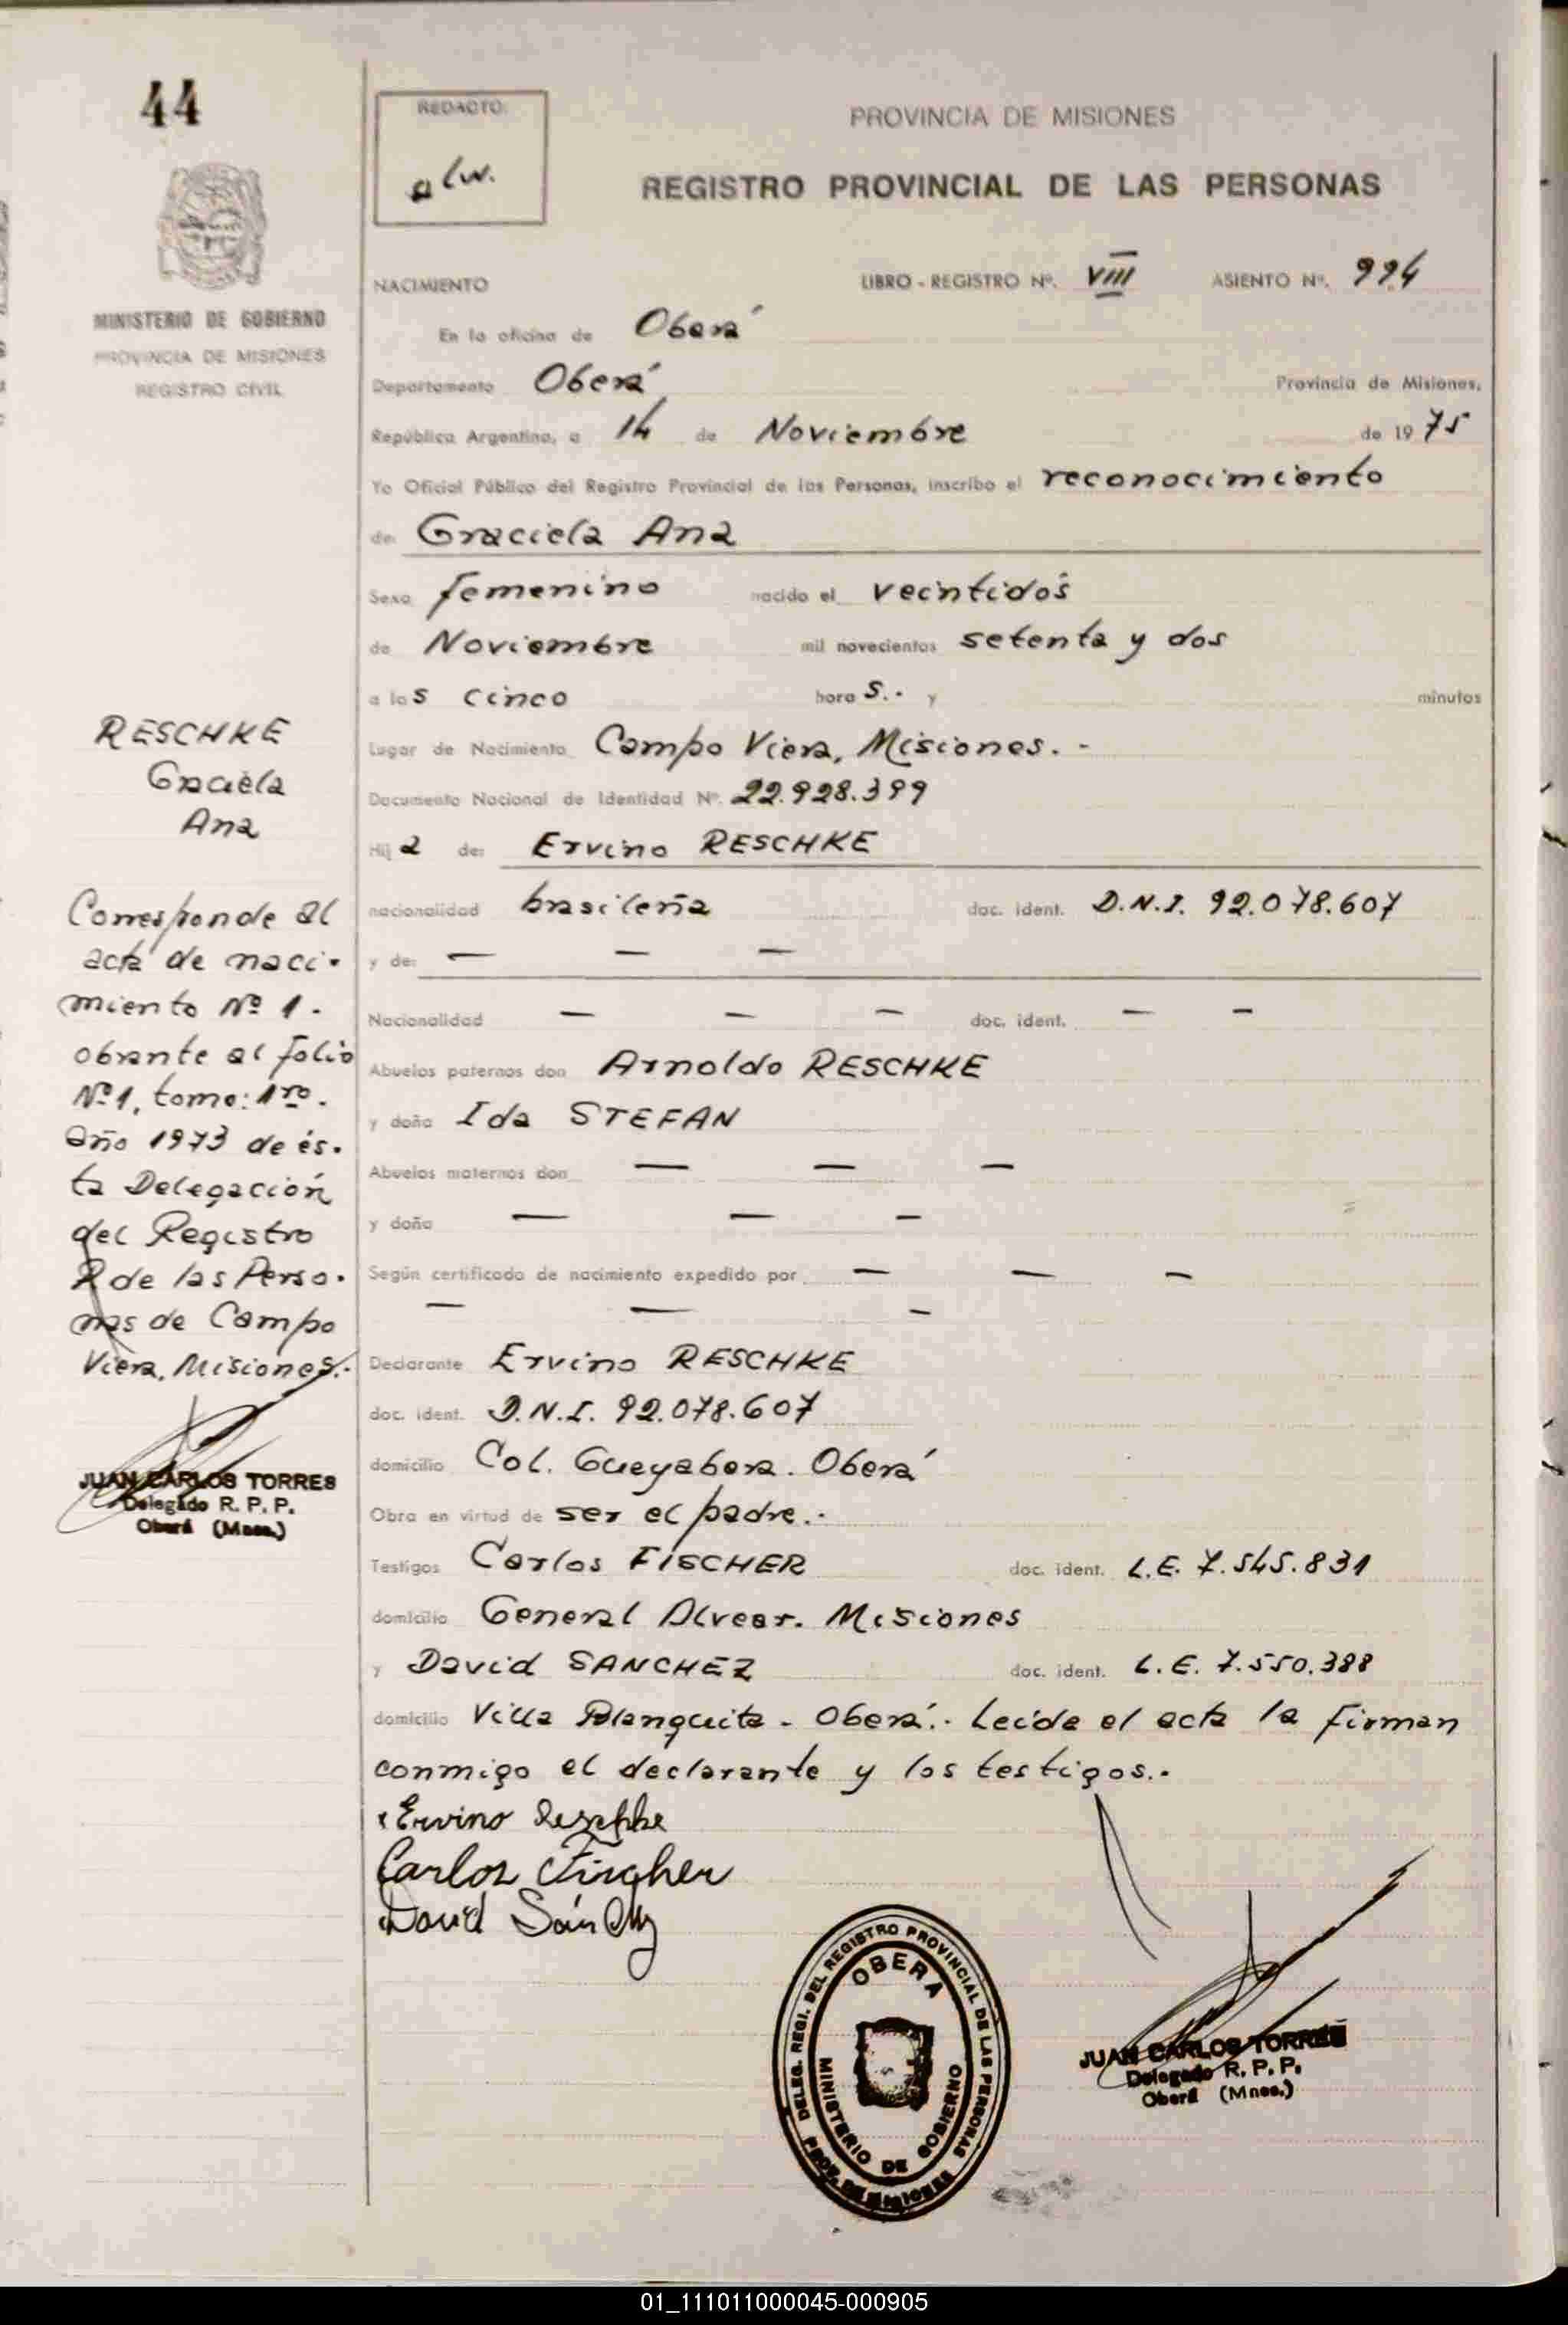 44
REDACTO:
alw.
PROVINCIA DE MISIONES
REGISTRO PROVINCIAL DE LAS PERSONAS
MINISTERIO DE GOBIERNO
PROVINCIA DE MISIONES
REGISTRO CIVIL
NACIMIENTO LIBRO - REGISTRO Nº. VIII ASIENTO Nº. 994
En la oficina de Oberá
Departamento Oberá Provincia de Misiones,
República Argentina, a 14 de Noviembre de 1975
Yo Oficial Público del Registro Provincial de las Personas, inscribo el reconocimiento
de Graciela Ana
Sexo femenino nacido el veintidós
de Noviembre mil novecientos setenta y dos
a las cinco horas.- y minutos
Lugar de Nacimiento Campo Viera, Misiones.-
Documento Nacional de Identidad Nº. 22.928.399
Hija de: Ervino RESCHKE
nacionalidad brasileña doc. ident. D.N.I. 92.078.607
y de: — — —
Nacionalidad — — — doc. ident. — —
Abuelos paternos don Arnoldo RESCHKE
y doña Ida STEFAN
Abuelos maternos don — — —
y doña — — —
Según certificado de nacimiento expedido por — — —
— — —
Declarante Ervino RESCHKE
doc. ident. D.N.I. 92.078.607
domicilio Col. Gueyabera. Oberá
Obra en virtud de ser el padre.-
Testigos Carlos FISCHER doc. ident. L.E. 7.545.831
domicilio General Alvear. Misiones
y David SANCHEZ doc. ident. L.E. 7.550.388
domicilio Villa Blanquita - Oberá.- Leída el acta la firman
conmigo el declarante y los testigos.-
Ervino Reschke
Carlos Fischer
David Sánchez
RESCHKE
Graciela
Ana
Corresponde al
acta de naci-
miento Nº 1.
obrante al folio
Nº1, tomo: 1ro.
año 1973 de és-
ta Delegación
del Registro
P. de las Perso-
nas de Campo
Viera, Misiones.-
JUAN CARLOS TORRES
Delegado R. P. P.
Oberá (Mnes.)
DELEG. REGI. DEL REGISTRO PROVINCIAL DE LAS PERSONAS
OBERA
MINISTERIO DE GOBIERNO
PROV. DE MISIONES
JUAN CARLOS TORRES
Delegado R. P. P.
Oberá (Mnes.)
01_111011000045-000905